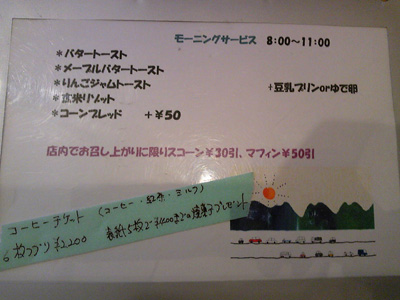 モーニングサービス 8:00~11:00
*バタートースト
*メープルバタートースト
*りんごジャムトースト
+豆乳プリンorゆで卵
*玄米リゾット
*コーンブレッド +¥50
店内でお召し上がりに限りスコーン¥30引、マフィン¥50引
コーヒーチケット (コーヒー・紅茶・ミルク)
6枚つづり ¥2,200
表紙5枚で¥400までの焼菓子プレゼント